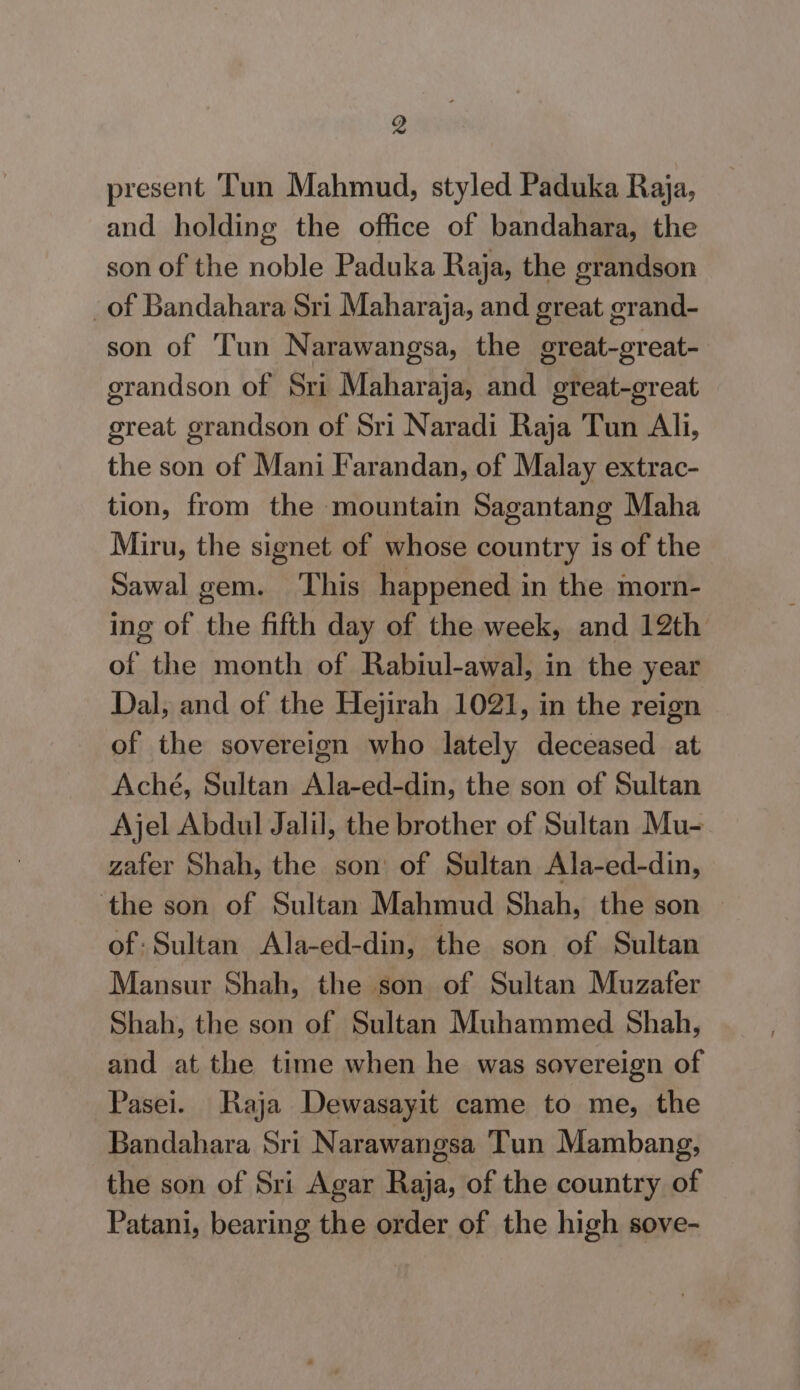 2
present Tun Mahmud, styled Paduka Raja,
and holding the office of bandahara, the
son of the noble Paduka Raja, the grandson
of Bandahara Sri Maharaja, and great grand-
son of Tun Narawangsa, the great-great-
grandson of Sri Maharaja, and great-great
great grandson of Sri Naradi Raja Tun Ali,
the son of Mani Farandan, of Malay extrac-
tion, from the mountain Sagantang Maha
Miru, the signet of whose country is of the
Sawal gem. This happened in the morn-
ing of the fifth day of the week, and 12th
of the month of Rabiul-awal, in the year
Dal, and of the Hejirah 1021, in the reign
of the sovereign who lately deceased at
Aché, Sultan Ala-ed-din, the son of Sultan
Ajel Abdul Jalil, the brother of Sultan Mu-
zafer Shah, the son of Sultan Ala-ed-din,
the son of Sultan Mahmud Shah, the son
of Sultan Ala-ed-din, the son of Sultan
Mansur Shah, the son of Sultan Muzafer
Shah, the son of Sultan Muhammed Shah,
and at the time when he was sovereign of
Pasei. Raja Dewasayit came to me, the
Bandahara Sri Narawangsa Tun Mambang,
the son of Sri Agar Raja, of the country of
Patani, bearing the order of the high sove-